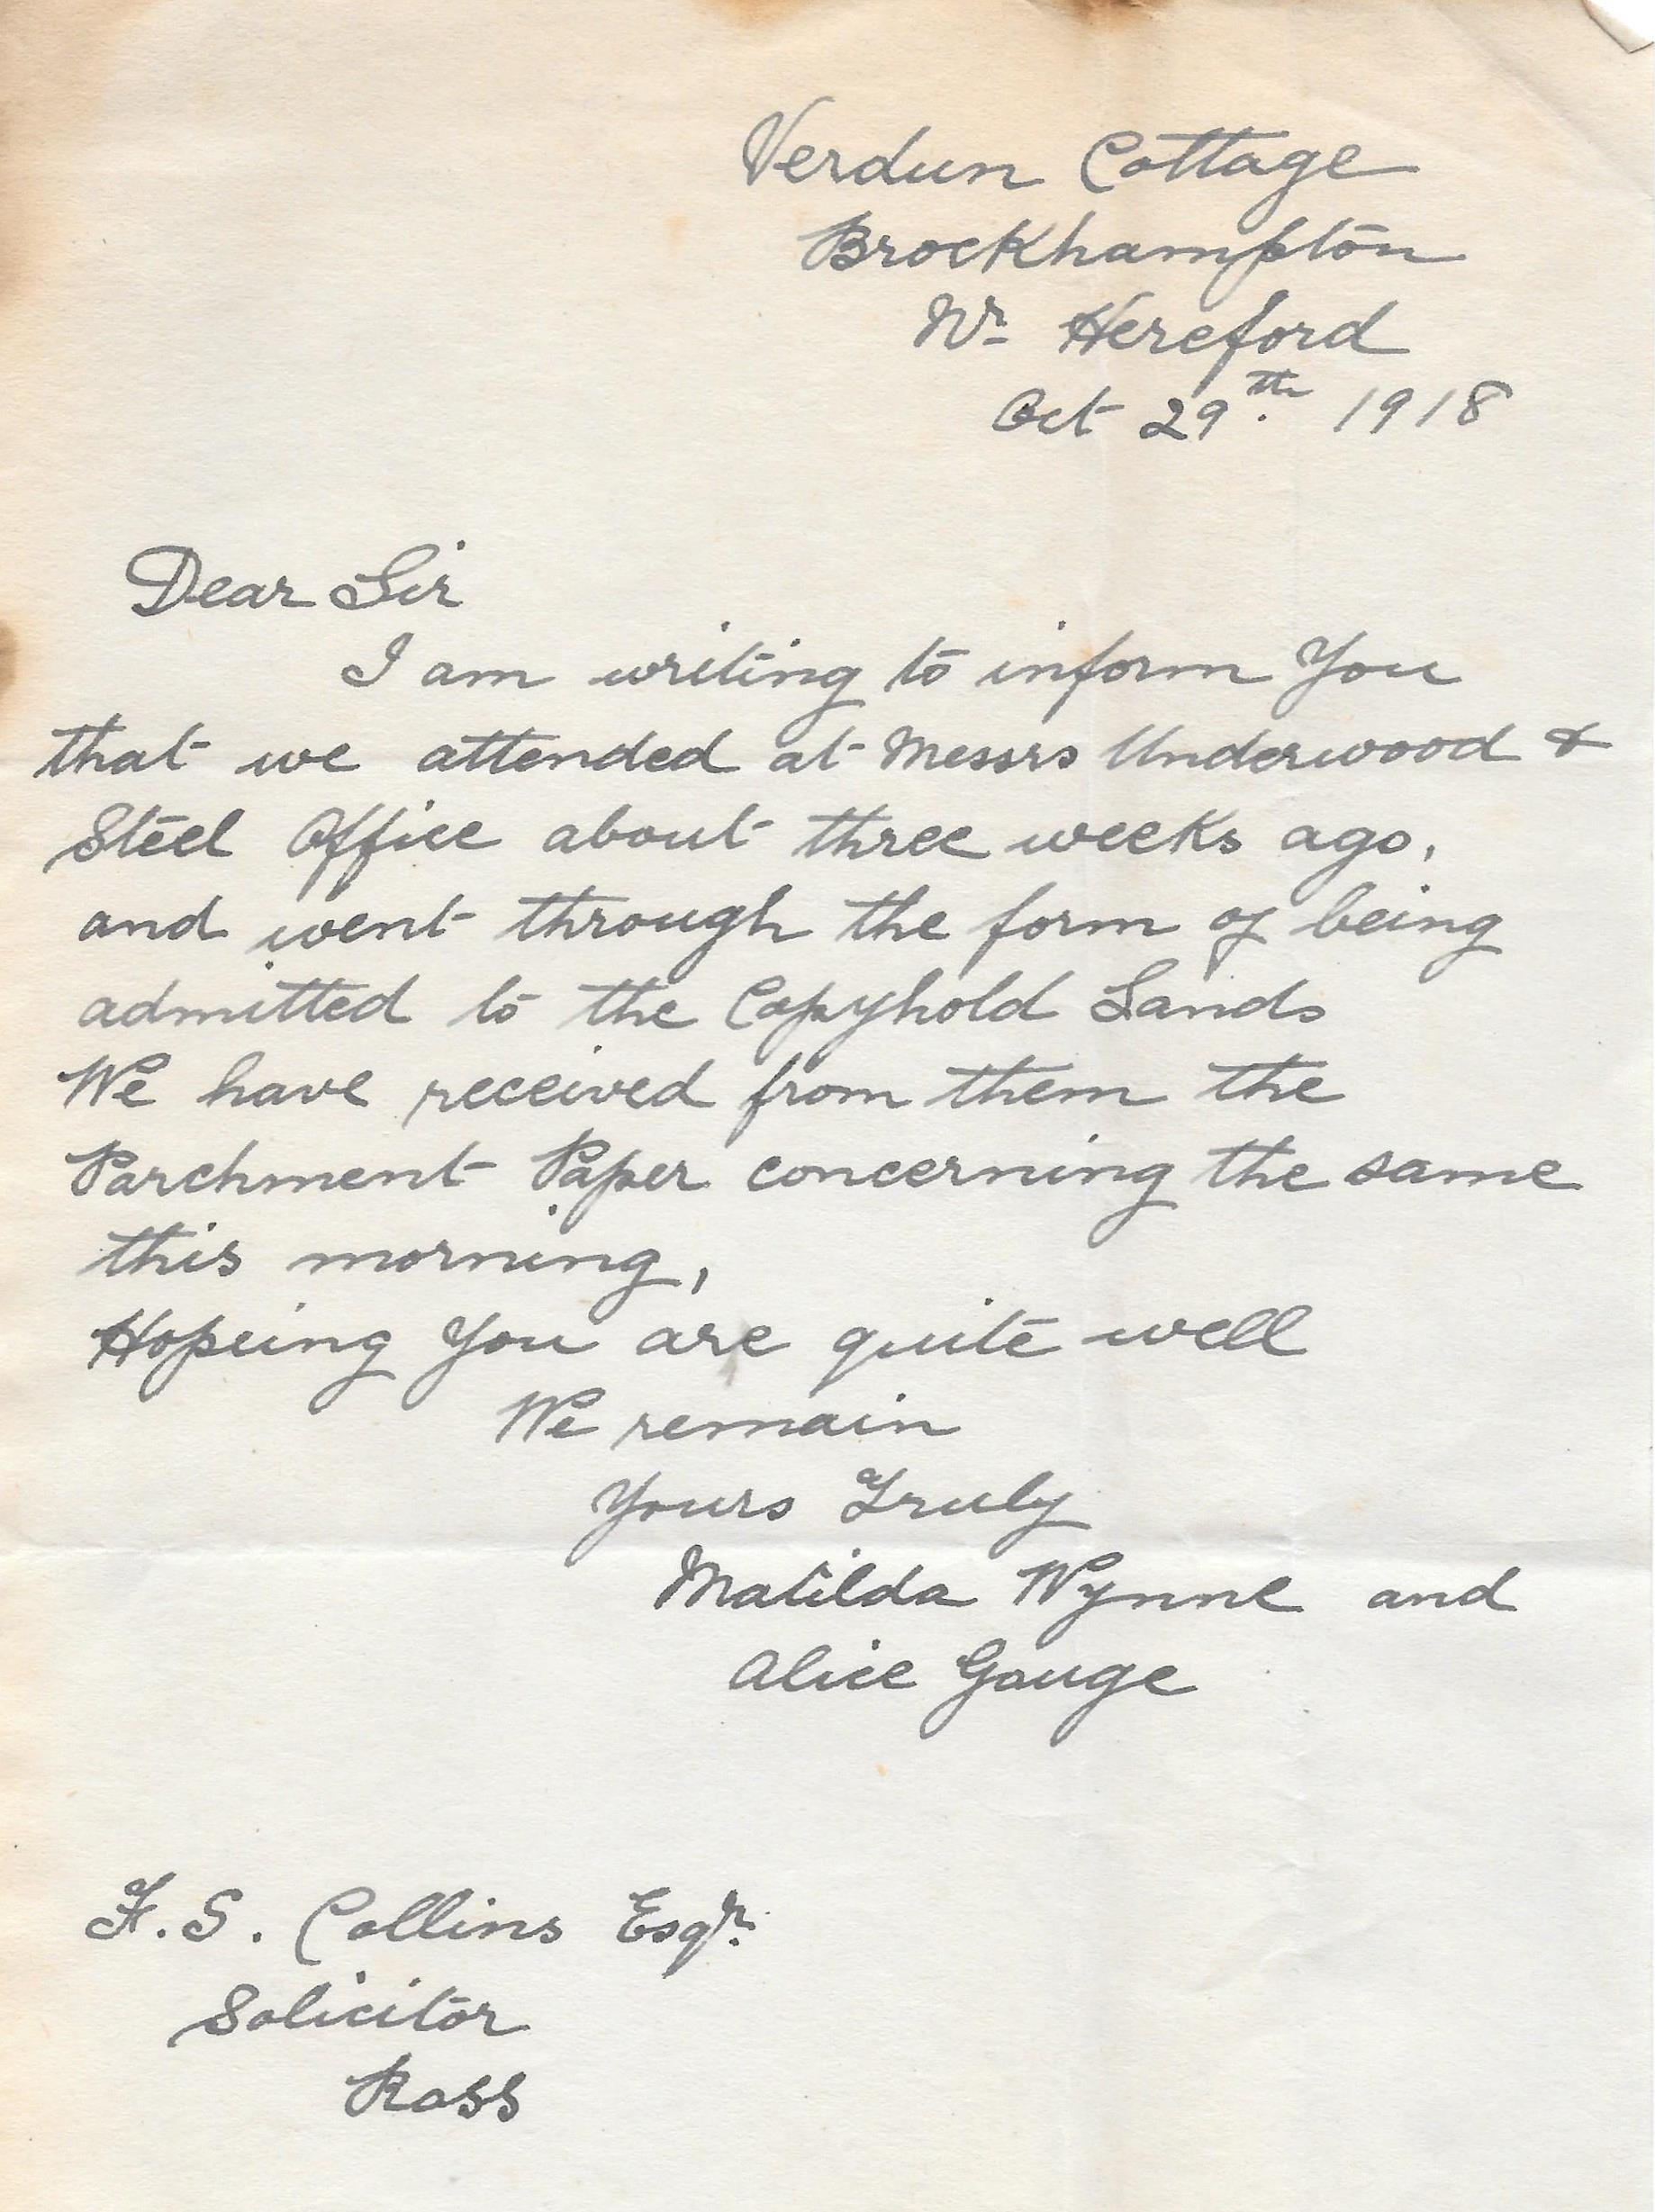 Verdun Cottage
Brockhampton
Nr Hereford
Oct 29th. 1918
Dear Sir
I am writing to inform You
that we attended at Messrs Underwood &
Steel Office about three weeks ago,
and went through the form of being
admitted to the Copyhold Lands
We have received from them the
Parchment Paper concerning the same
this morning,
Hopeing You are quite well
We remain
Yours Truly
Matilda Wynne and
Alice Gouge
F. S. Collins Esqr.
Solicitor
Ross